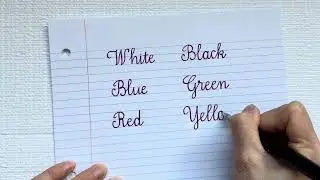 White Black
Blue Green
Red Yello